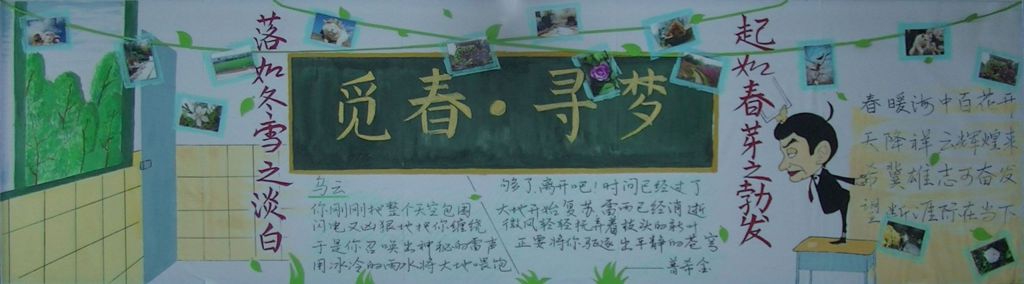 落如冬雪之淡白
觅春·寻梦
起如春芽之勃发
乌云
你刚刚把整个天空包围
闪电又凶狠地把你缠绕
于是你召唤出神秘的雷声
用冰冷的雨水将大地喂饱
够了,离开吧!时间已经过了
大地开始复苏,雷雨已经消逝
微风轻轻抚弄着枝头的新叶
正要将你驱逐出平静的苍穹
——普希金
春暖海中百花开
天降祥云辉煌来
希冀雄志可奋发
望断涯际在当下